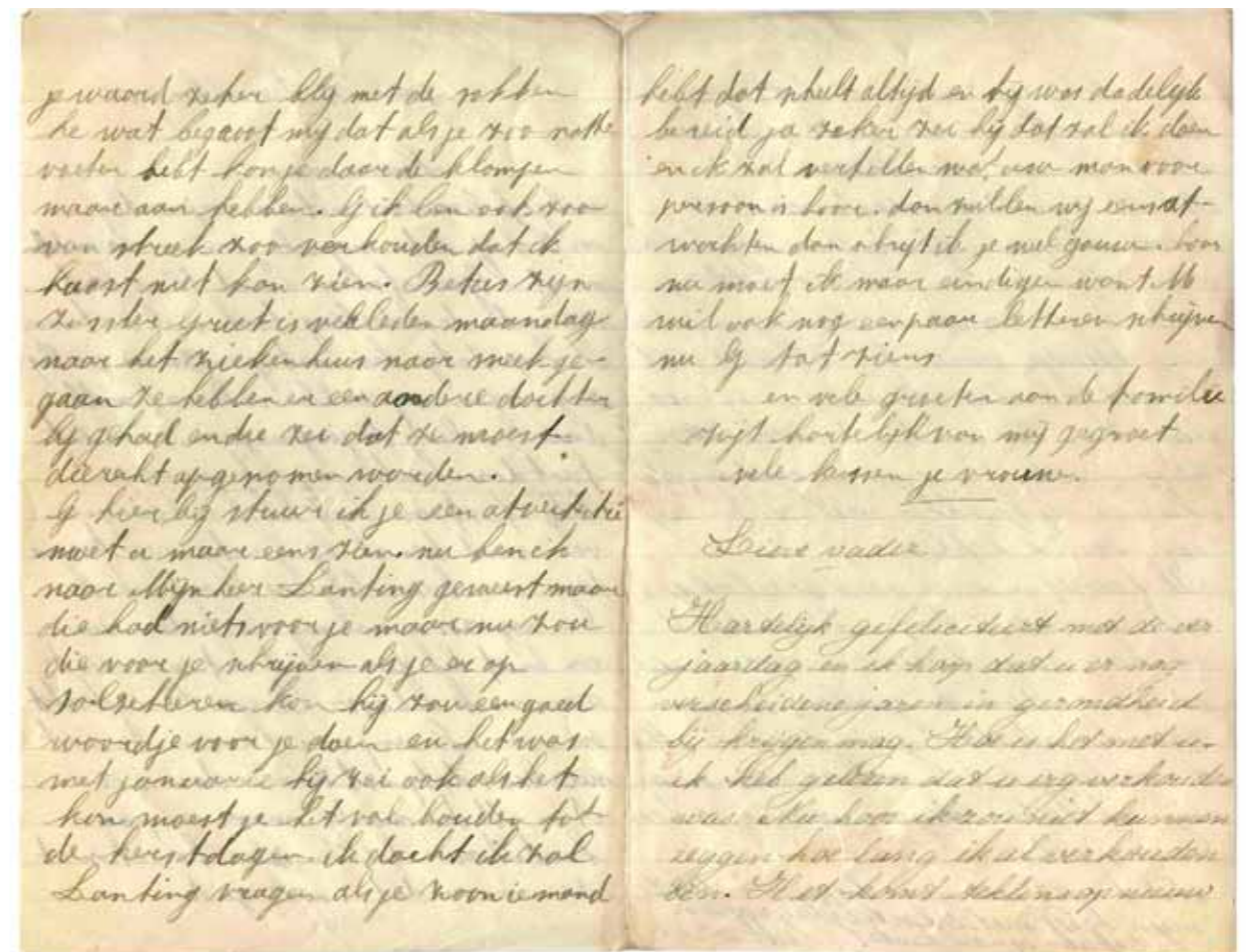 je waard zeker blij met de sokken
he wat begroot mij dat als je zoo natte
voeten hebt kon je daar de klompen
maar aan hebben. G ik ben ook zoo
van streek zoo verkouden dat ik
haast niet kan zien. Betsus zijn
zuster griet is verleden maandag
naar het ziekenhuis naar sneek ge-
gaan ze hebben er een andere dochter
bij gehad en die zei dat ze moest
dierekt opgenomen worden.
G hier bij stuur ik je een atvertetie
moet u maar eens zien. nu ben ik
naar Mijn heer Lanting geweest maar
die had niets voor je maar nu zou
die voor je schrijven als je er op
solseteeren kon hij zou een goed
woordje voor je doen en het was
met januarie hij zei ook als het
kon moest je het vol houden tot
de kerstdagen ik dacht ik zal
Lanting vragen als je zoon iemand
hebt dat scheelt altijd en hij was dadelijk
bereid ja zeker zei hij dat zal ik doen
en ik zal vertellen wat uw man voor
persoon is hoor. dan zullen wij eens at-
wachten dan schrijf ik je wel gauw. hoor
nu moet ik maar eindigen want M
wil ook nog een paar letteren schrijven
nu G tot ziens
en vele groeten aan de familie
zijt hartelijk van mij gegroet
vele kussen je vrouw.
Lieve vader
Hartelijk gefeliciteert met de ver
jaardag en ik hoop dat u er nog
verscheidene jaren in gezondheid
bij krijgen mag. Hoe is het met u.
ik heb gelezen dat u erg verkouden
was. Nu hoor ik zou niet kunnen
zeggen hoe lang ik al verkouden
ben. Het komt telkens op nieuw